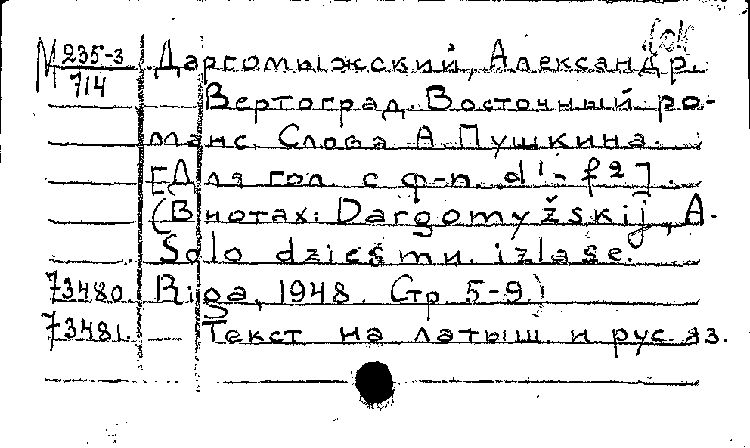 М 235-3 Даргомыжский, Александр.
714
Вертоград. Восточный ро-
манс. Слова А. Пушкина.
[Для гол. с ф-п. d¹-f²].
(В нотах: Dargomyžskij, A.
Solo dziesmu izlase.
73480. Riga, 1948. Стр. 5-9.)
73481. Текст на латыш. и рус. яз.